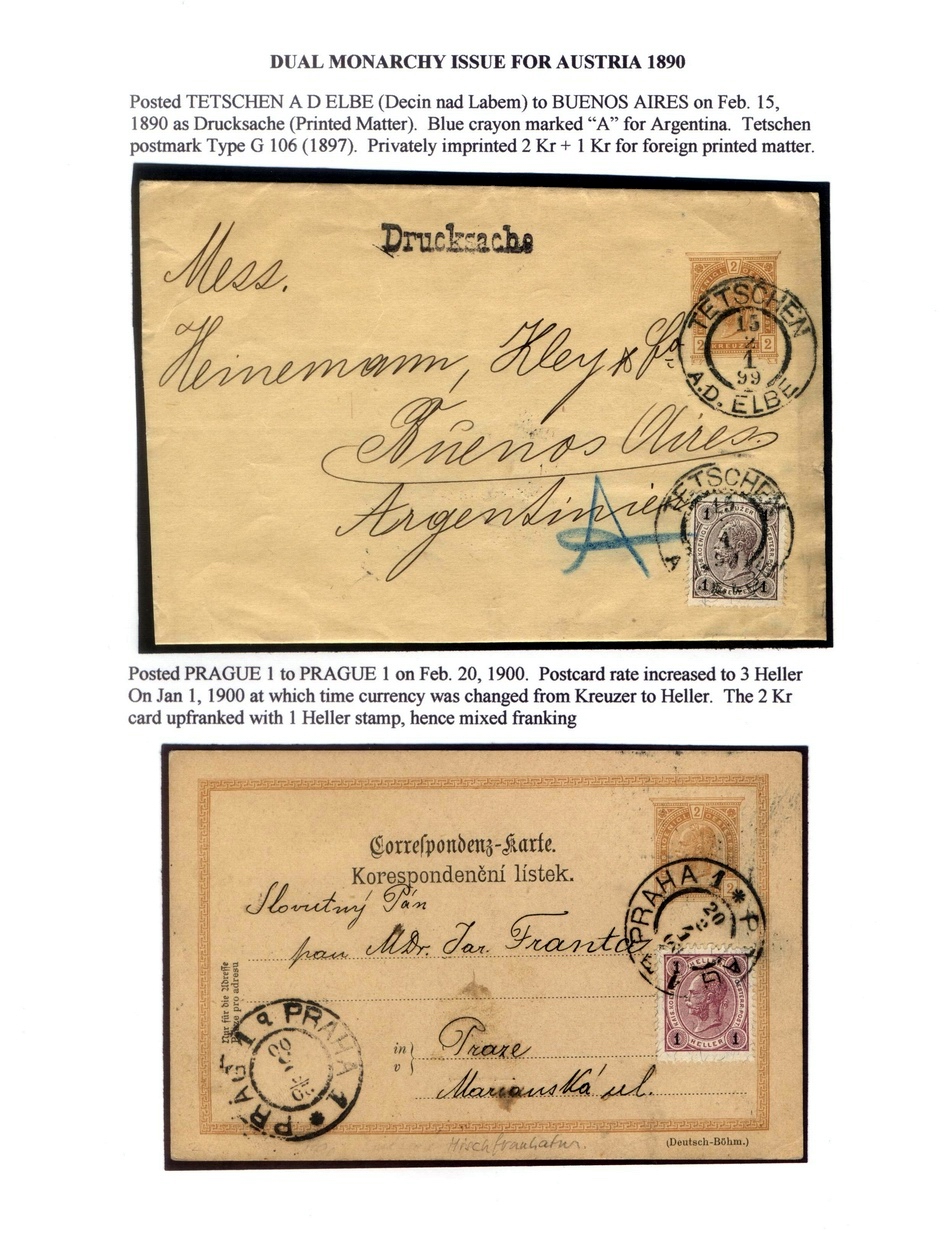 DUAL MONARCHY ISSUE FOR AUSTRIA 1890
Posted TETSCHEN A D ELBE (Decin nad Labem) to BUENOS AIRES on Feb. 15,
1890 as Drucksache (Printed Matter). Blue crayon marked “A” for Argentina. Tetschen
postmark Type G 106 (1897). Privately imprinted 2 Kr + 1 Kr for foreign printed matter.
Drucksache
Mess.
Heinemann, Kley & Co
Buenos Aires
Argentinien
A
2
2 KREUZER 2
TETSCHEN
15
2
1
99
A.D. ELBE
TETSCHEN
1 KREUZER 1
1 1
Posted PRAGUE 1 to PRAGUE 1 on Feb. 20, 1900. Postcard rate increased to 3 Heller
On Jan 1, 1900 at which time currency was changed from Kreuzer to Heller. The 2 Kr
card upfranked with 1 Heller stamp, hence mixed franking
2
Correſpondenz-Karte.
Korespondenční lístek.
Slovutný Pán
pan MDr. Jar. Franta
Nur für die Adreſſe
Pouze pro adresu
in
v
Praze
Marianská ul.
PRAHA 1
20
1 HELLER 1
1 HELLER 1
PRAG 1 PRAHA 1
Mischfrankatur.
(Deutsch-Böhm.)